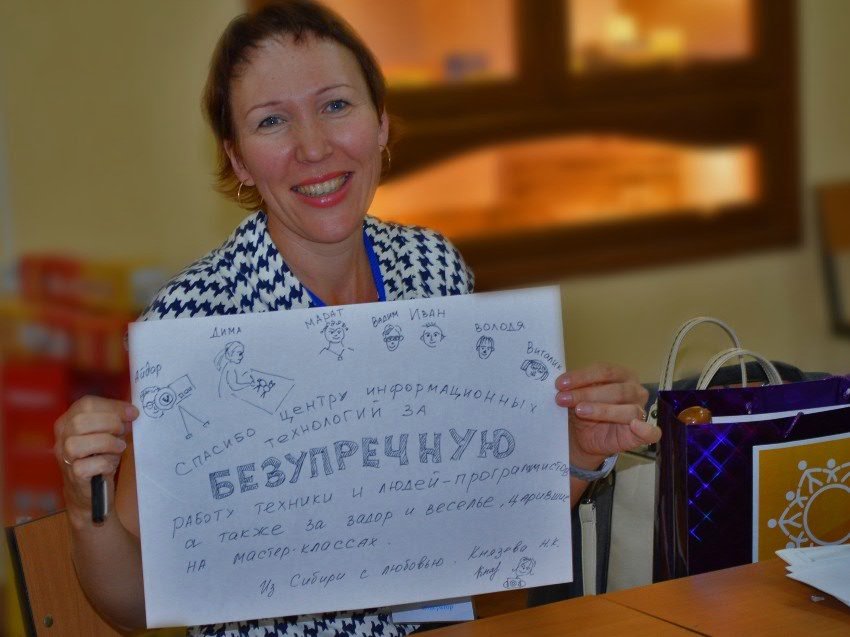 Айдар
Дима
Марат
Вадим
Иван
Володя
Виталик
Спасибо центру информационных
технологий за
БЕЗУПРЕЧНУЮ
работу техники и людей-программистов,
а также за задор и веселье, царившие
на мастер-классах.
Из Сибири с любовью. Князева Н.К.